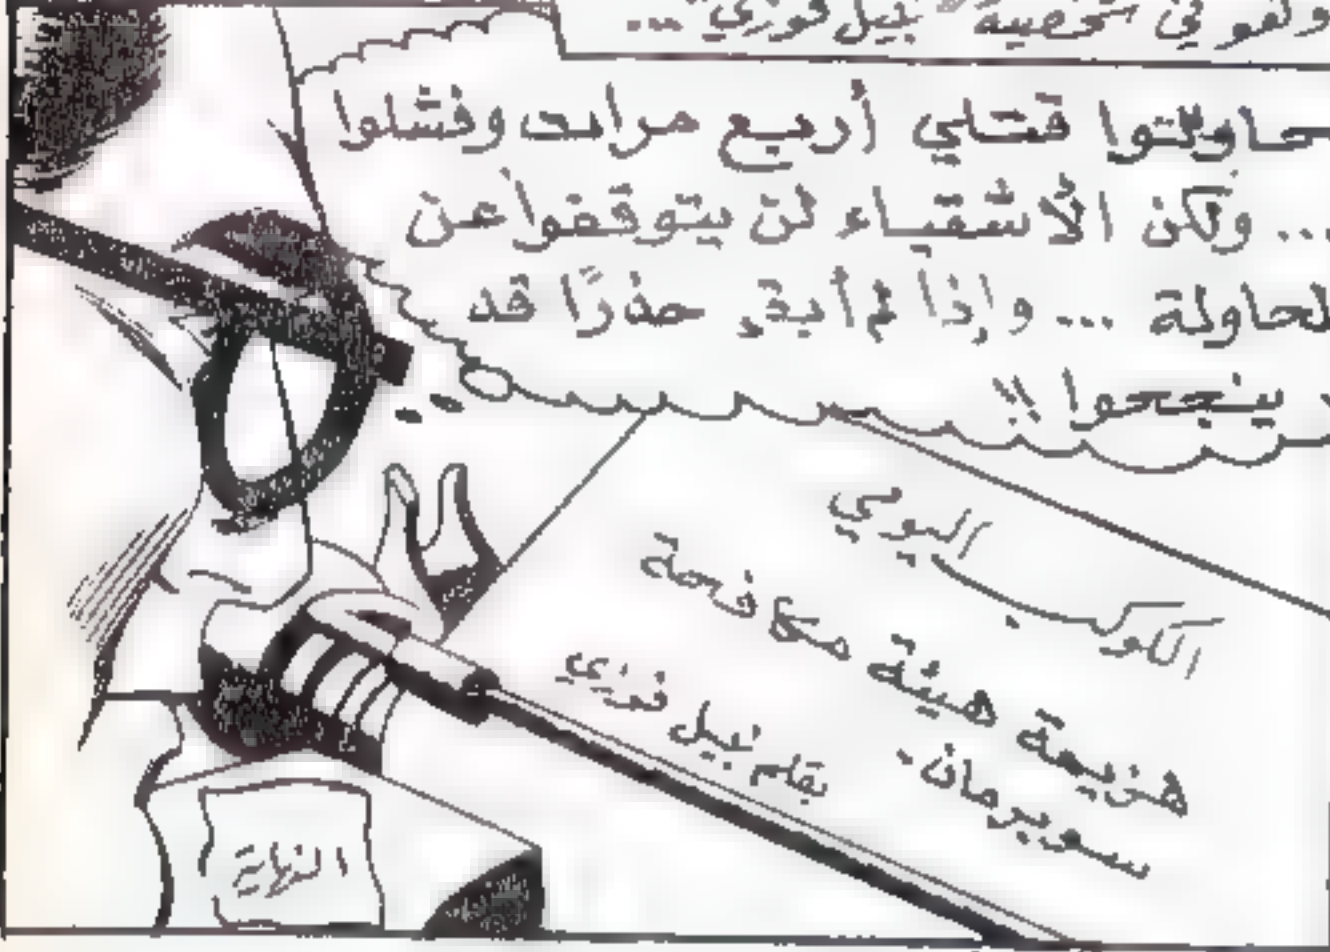 وهو في شخصية "نبيل فوزي" ...
حاولتوا قتلي أربع مرات وفشلوا
... ولكن الأشقياء لن يتوقفوا عن
لمحاولة ... وإذا لم أبق حذرًا قد
ينجحوا !!
الكوكب اليومي
هزيمة هيئة مكافحة
سوبرمان.
بقلم نبيل فوزي
النهاية